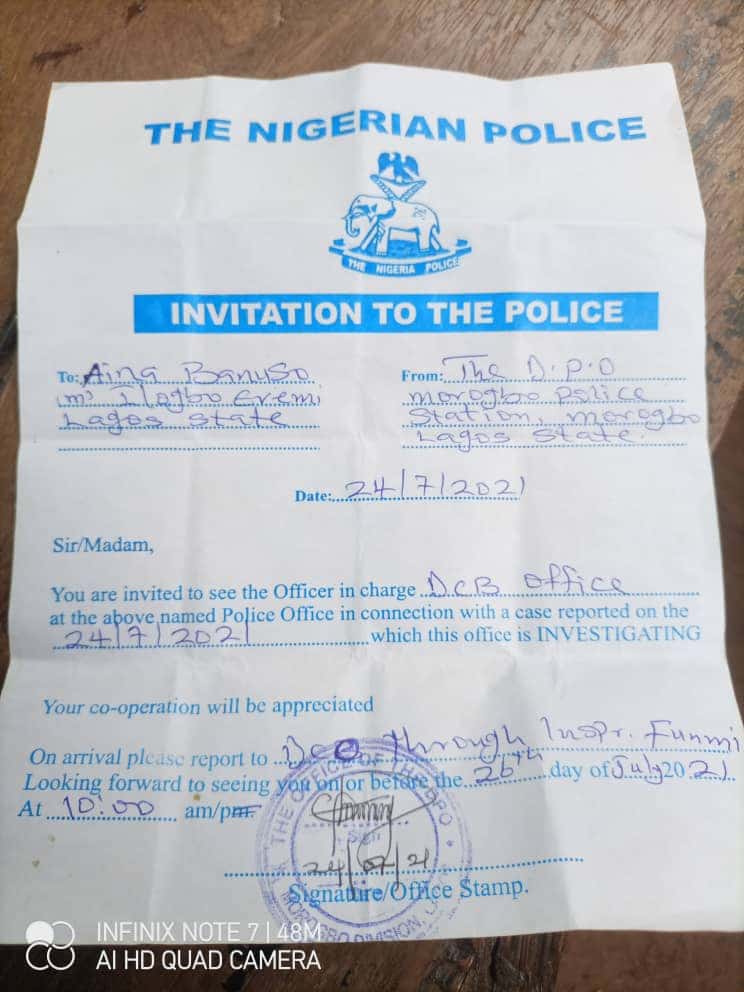 THE NIGERIAN POLICE
THE NIGERIA POLICE
INVITATION TO THE POLICE
To: Aina Banuso
(m) Ilogbo Eremi
Lagos State
From: The D.P.O
morogbo police
Station, morogbo
Lagos State.
Date: 24/7/2021
Sir/Madam,
You are invited to see the Officer in charge DCB office
at the above named Police Office in connection with a case reported on the
24/7/2021 which this office is INVESTIGATING
Your co-operation will be appreciated
On arrival please report to DCO through Inspr. Funmi
Looking forward to seeing you on or before the 26th day of July 2021.
At 10:00 am/pm
THE OFFICE OF
Sign
24/07/21
MOROGBO DIVISION,
Signature/Office Stamp.
INFINIX NOTE 7 | 48M
AI HD QUAD CAMERA